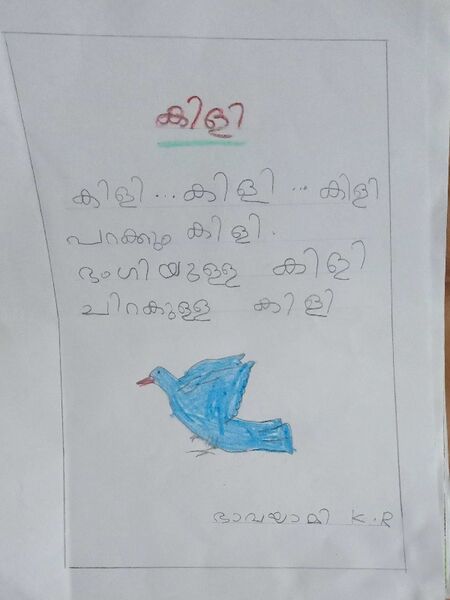 കിളി
കിളി... കിളി... കിളി
പറക്കും കിളി.
ഭംഗിയുള്ള കിളി
ചിറകുള്ള കിളി
ഭാവയാമി K.R